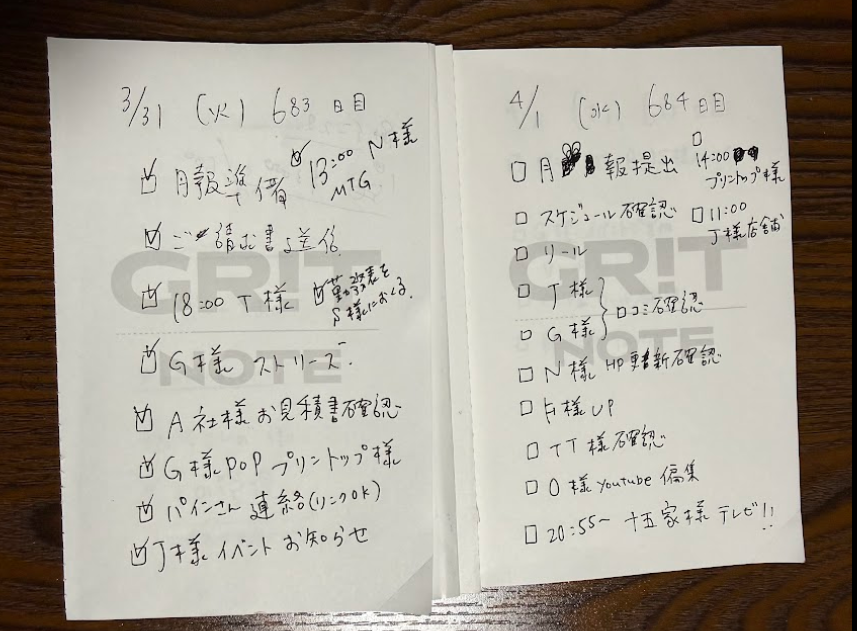 3/31 (火) 683日目
月報準備
13:00 N様
MTG
ご請求書送信
18:00 T様
勤務表を
S様におくる
G様 ストリーズ
A社様 お見積書確認
G様 POP プリントップ様
パインさん 連絡(リンクOK)
J様 イベント お知らせ
GRIT
NOTE
4/1 (水) 684日目
月報提出
14:00
プリントップ様
スケジュール確認
11:00
J様店舗
リール
J様
G様
口コミ確認
N様 HP更新確認
様UP
TT様確認
O様 Youtube 編集
20:55〜 十五家様 テレビ!!
GRIT
NOTE